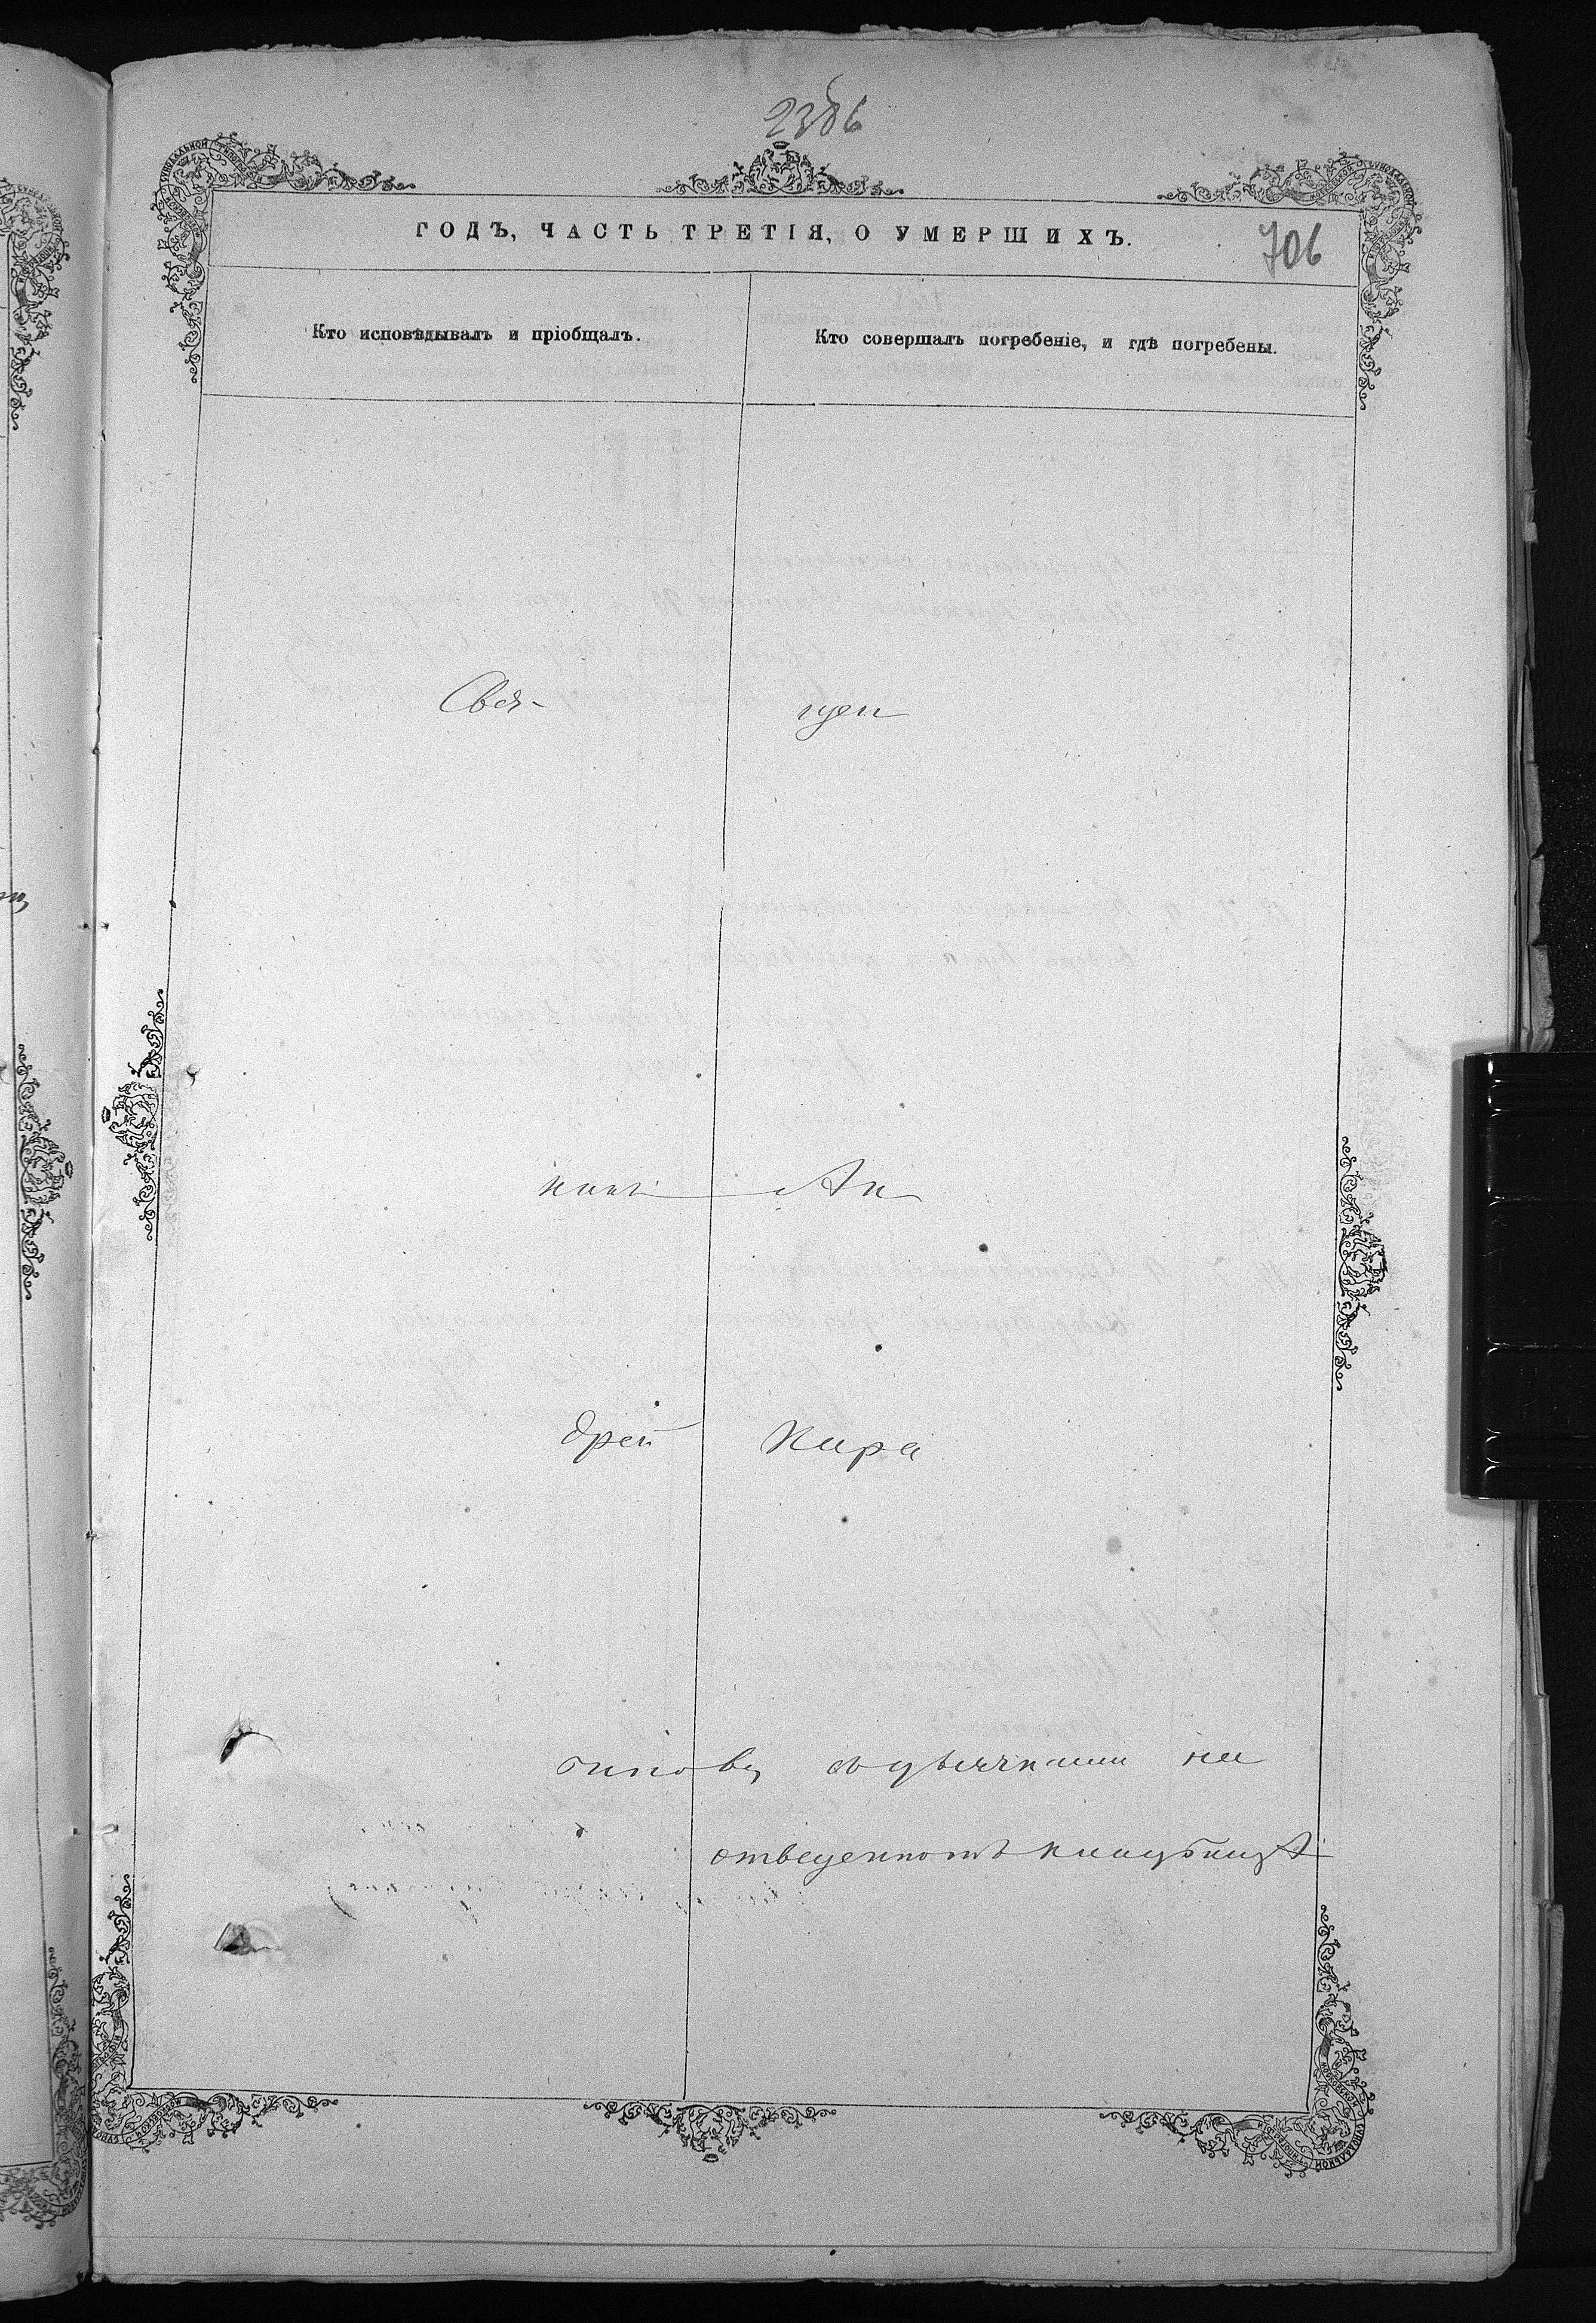 2386
ГОДЪ, ЧАСТЬ ТРЕТІЯ, О УМЕРШИХЪ.
706
Кто исповѣдывалъ и пріобщалъ.
Кто совершалъ погребеніе, и гдѣ погребены.
Свя- щен
никъ Ан
дрей Кира
отведенномъ кладбищѣ